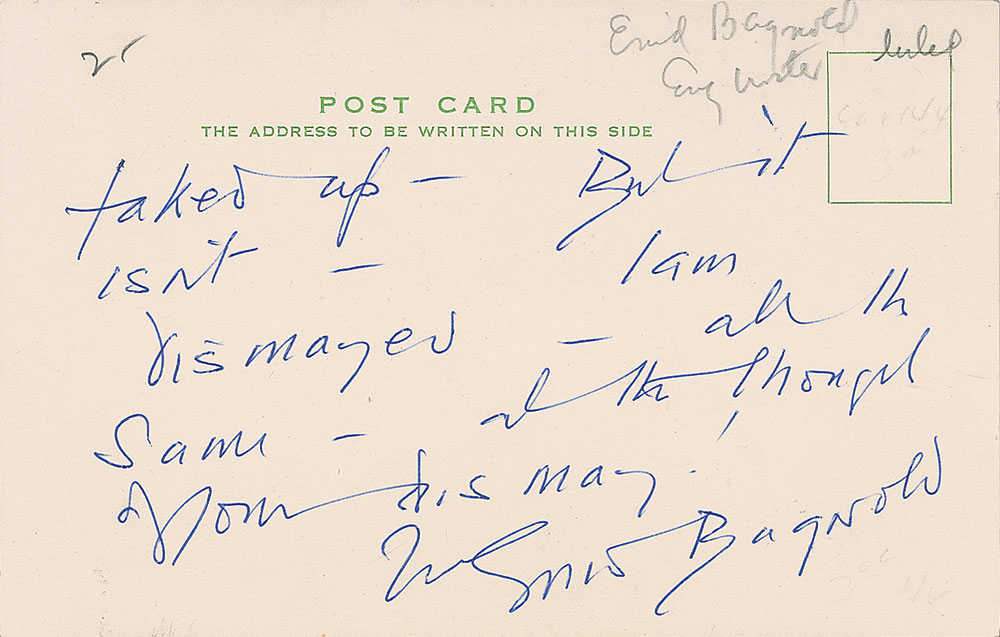 25
Enid Bagnold
Eng writer
POST CARD
THE ADDRESS TO BE WRITTEN ON THIS SIDE
faked up — But it
isn't — I am
dismayed — all the
same — at the thought
of your dismay.
Enid Bagnold